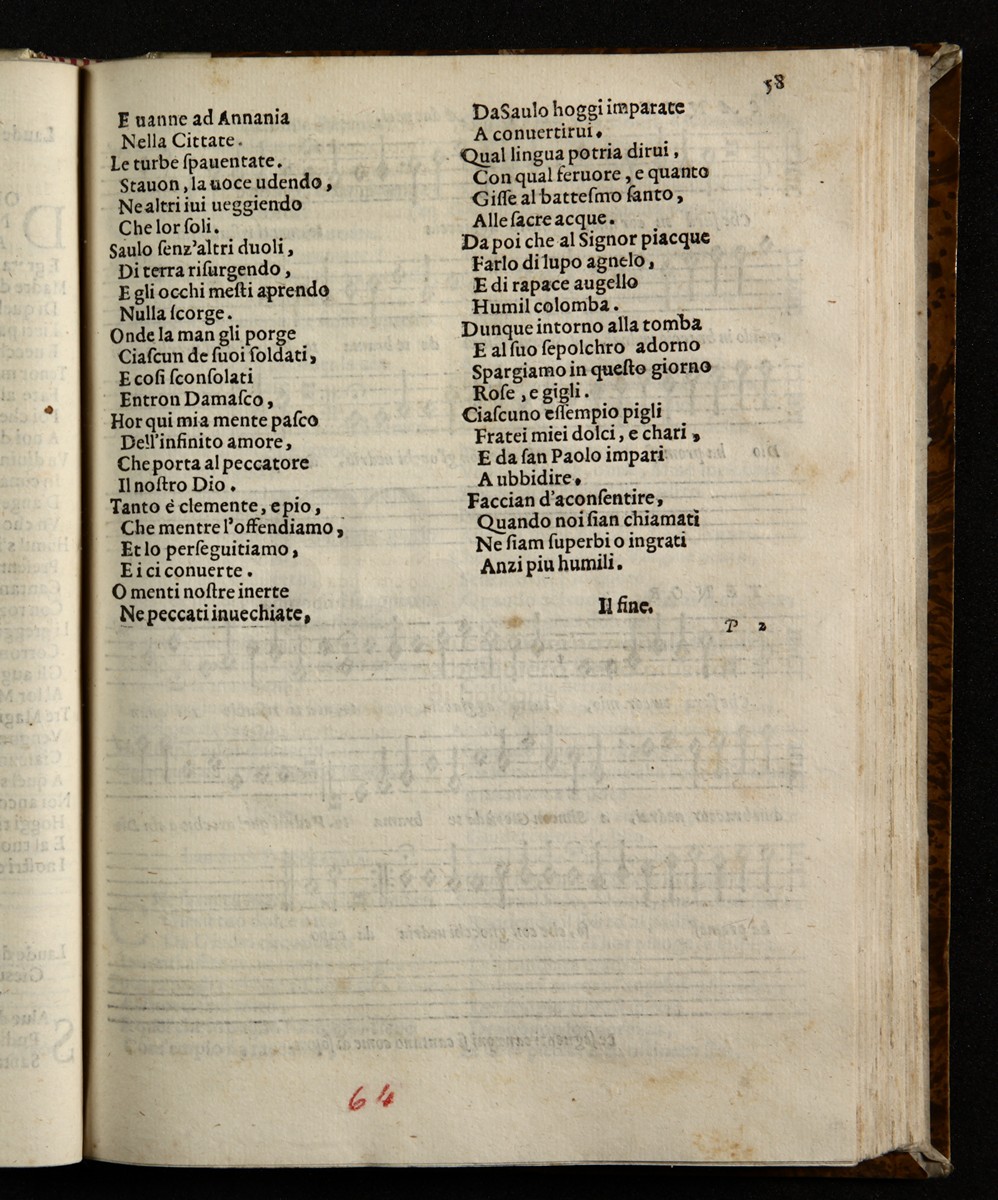 58
E uanne ad Annania
Nella Cittate.
Le turbe ſpauentate.
Stauon, la uoce udendo,
Ne altri iui ueggiendo
Che lor ſoli.
Saulo ſenz'altri duoli,
Di terra riſurgendo,
E gli occhi meſti aprendo
Nulla ſcorge.
Onde la man gli porge
Ciaſcun de ſuoi ſoldati,
E coſi ſconſolati
Entron Damaſco,
Hor qui mia mente paſco
Dell'infinito amore,
Che porta al peccatore
Il noſtro Dio.
Tanto é clemente, e pio,
Che mentre l'offendiamo,
Et lo perſeguitiamo,
E i ci conuerte.
O menti noſtre inerte
Ne peccati inuechiate,
Da Saulo hoggi imparate
A conuertirui.
Qual lingua potria dirui,
Con qual feruore, e quanto
Giſſe al batteſmo ſanto,
Alle ſacre acque.
Da poi che al Signor piacque
Farlo di lupo agnelo,
E di rapace augello
Humil colomba.
Dunque intorno alla tomba
E al ſuo ſepolchro adorno
Spargiamo in queſto giorno
Roſe, e gigli.
Ciaſcuno eſſempio pigli
Fratei miei dolci, e chari,
E da ſan Paolo impari
A ubbidire.
Faccian d'aconſentire,
Quando noi ſian chiamati
Ne ſiam ſuperbi o ingrati
Anzi piu humili.
Il fine.
P 2
64